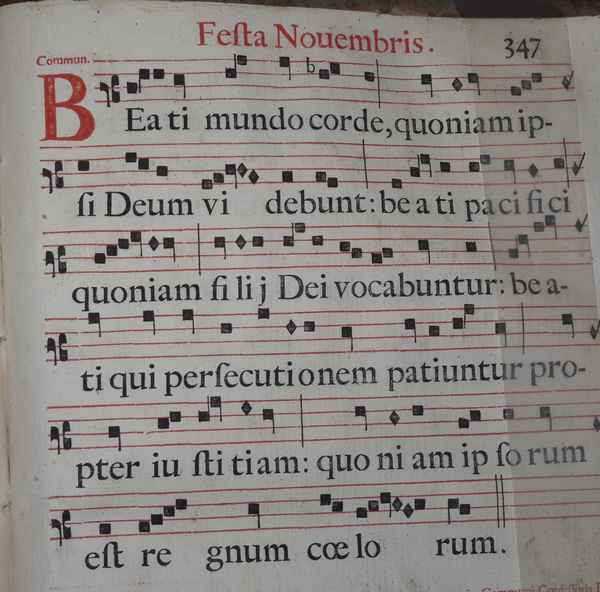 Feſta Nouembris. 347
Commun.
BEa ti mundo corde, quoniam ip-
ſi Deum vi debunt: be a ti pa ci fi ci
quoniam fi li j Dei vocabuntur: be a-
ti qui perſecuti onem patiuntur pro-
pter iu ſti ti am: quo ni am ip ſo rum
eſt re gnum cœ lo rum.